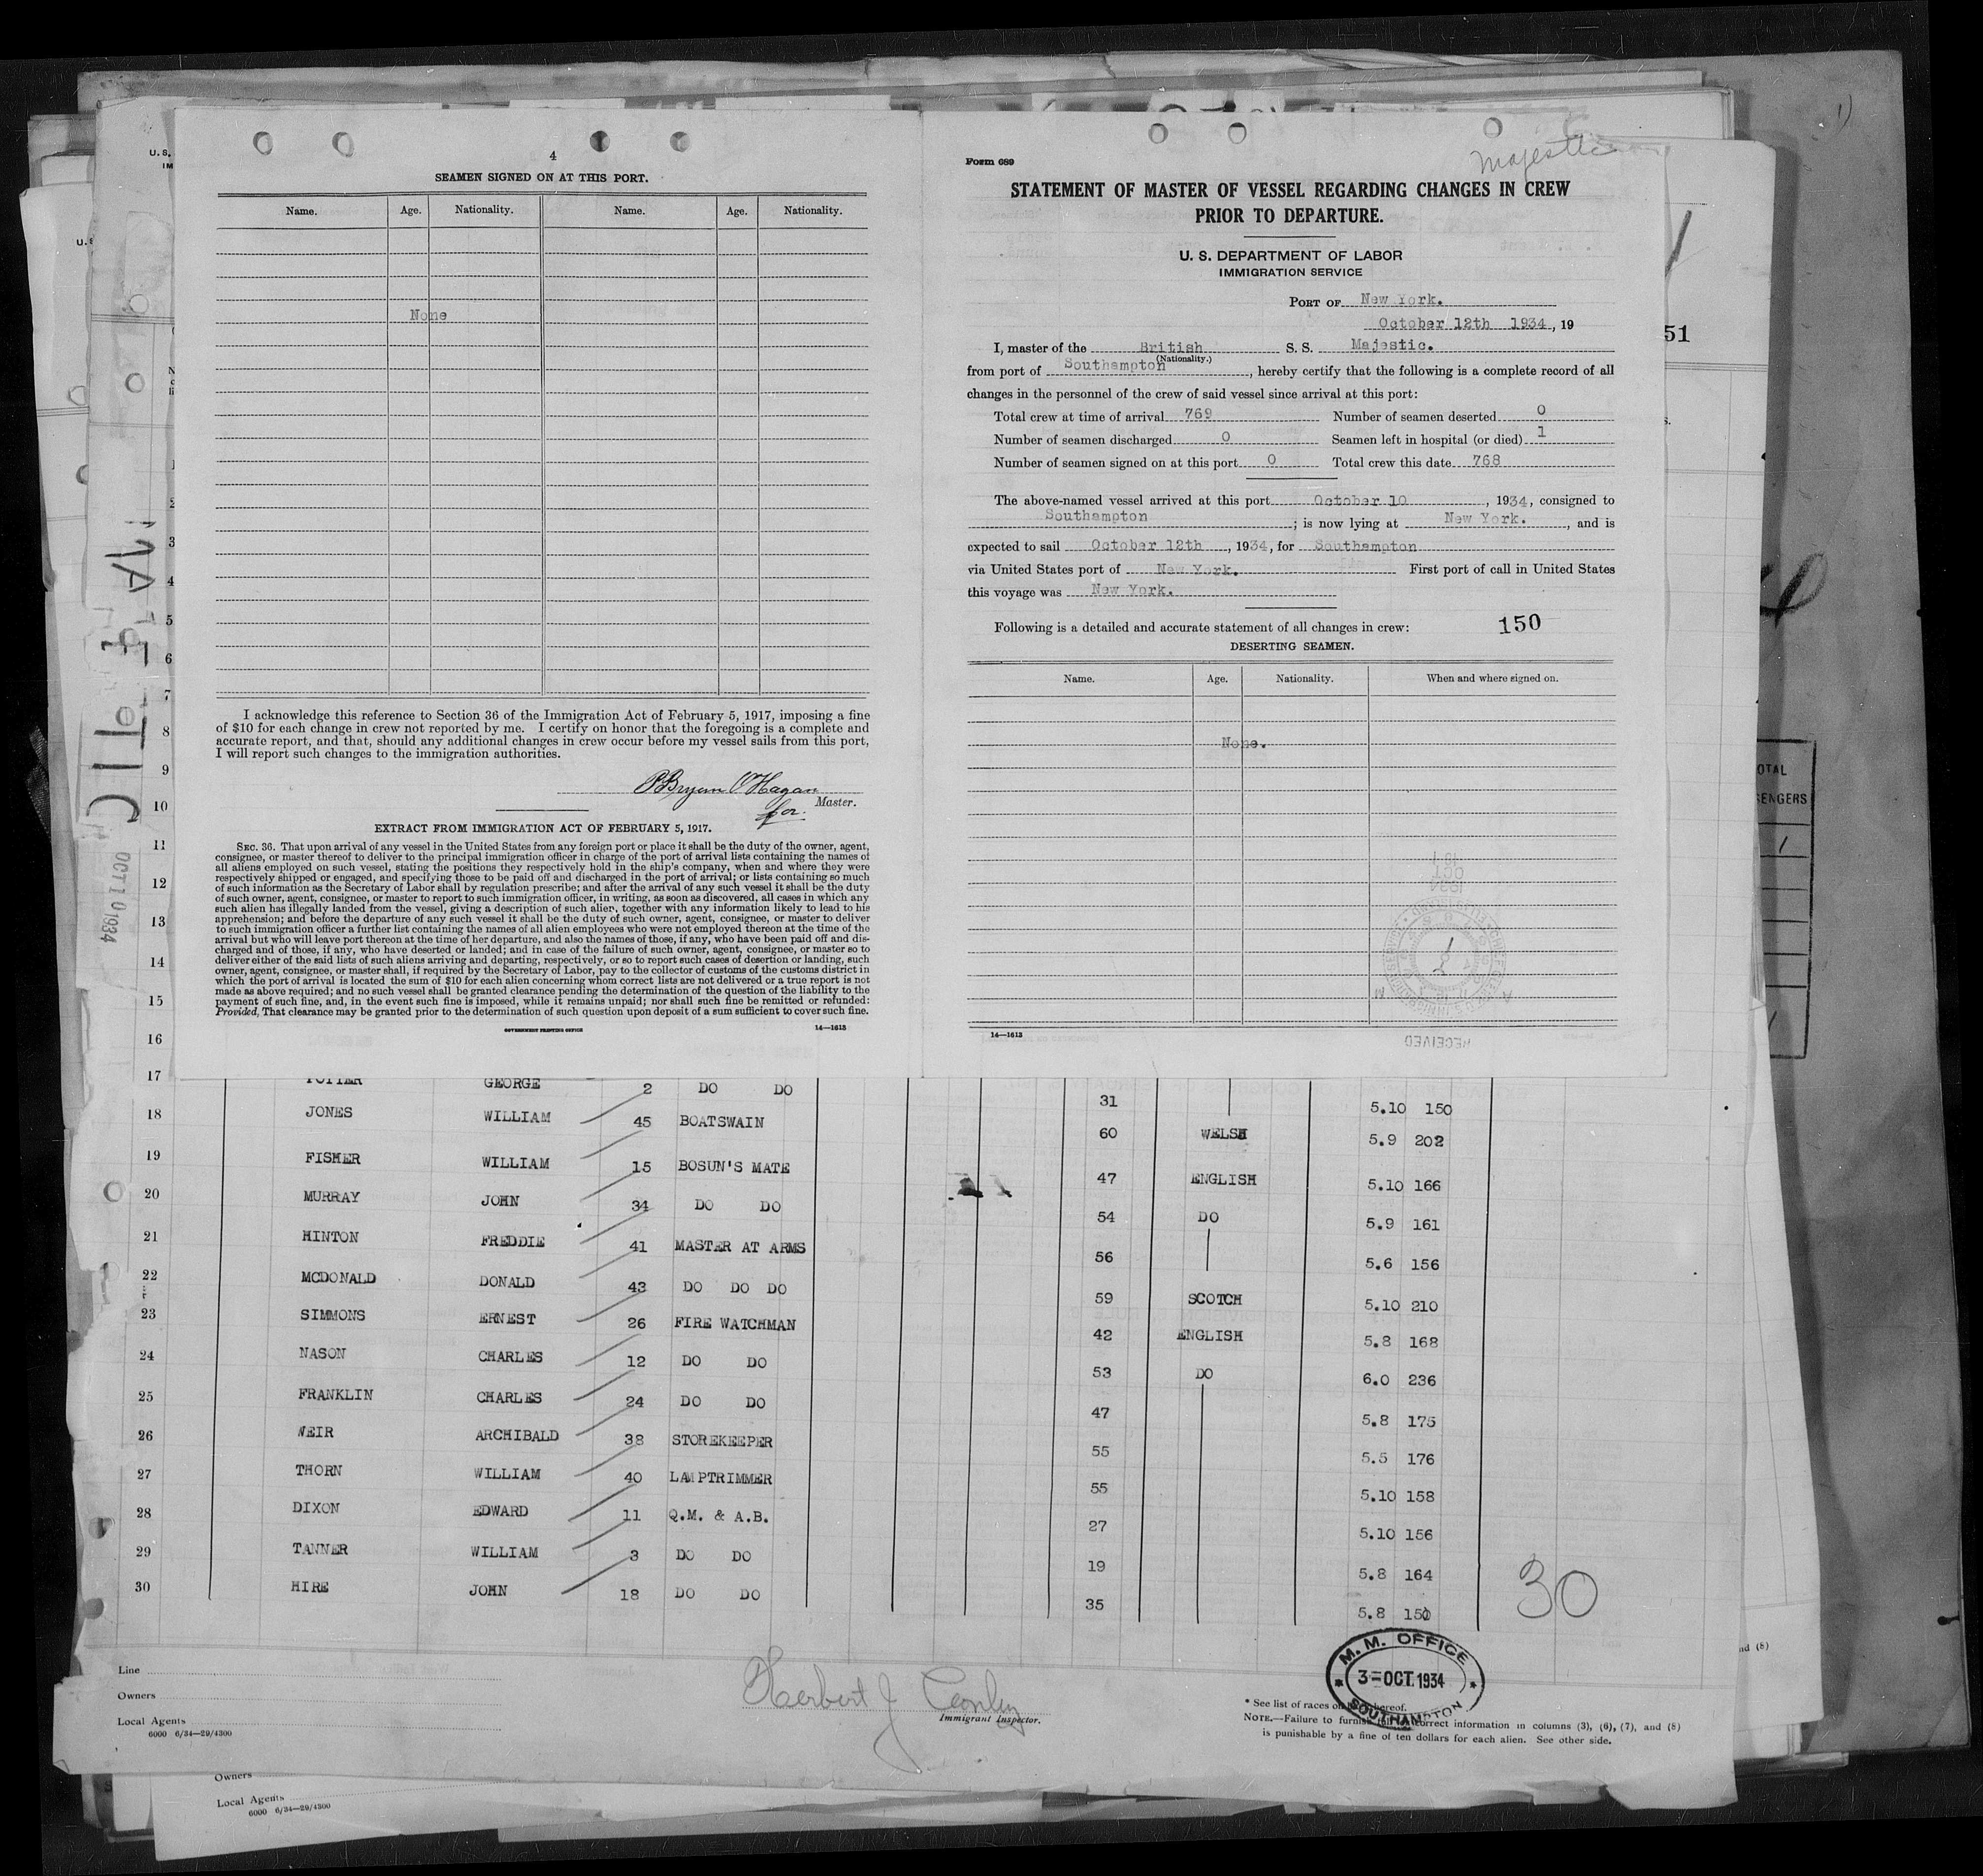 4
SEAMEN SIGNED ON AT THIS PORT.
Name. Age. Nationality. Name. Age. Nationality.
None
I acknowledge this reference to Section 36 of the Immigration Act of February 5, 1917, imposing a fine
of $10 for each change in crew not reported by me. I certify on honor that the foregoing is a complete and
accurate report, and that, should any additional changes in crew occur before my vessel sails from this port,
I will report such changes to the immigration authorities.
O'Hagan
for Master.
EXTRACT FROM IMMIGRATION ACT OF FEBRUARY 5, 1917.
SEC. 36. That upon arrival of any vessel in the United States from any foreign port or place it shall be the duty of the owner, agent,
consignee, or master thereof to deliver to the principal immigration officer in charge of the port of arrival lists containing the names of
all aliens employed on such vessel, stating the positions they respectively hold in the ship's company, when and where they were
respectively shipped or engaged, and specifying those to be paid off and discharged in the port of arrival; or lists containing so much
of such information as the Secretary of Labor shall by regulation prescribe; and after the arrival of any such vessel it shall be the duty
of such owner, agent, consignee, or master to report to such immigration officer, in writing, as soon as discovered, all cases in which any
such alien has illegally landed from the vessel, giving a description of such alien, together with any information likely to lead to his
apprehension; and before the departure of any such vessel it shall be the duty of such owner, agent, consignee, or master to deliver
to such immigration officer a further list containing the names of all alien employees who were not employed thereon at the time of the
arrival but who will leave port thereon at the time of her departure, and also the names of those, if any, who have been paid off and dis-
charged and of those, if any, who have deserted or landed; and in case of the failure of such owner, agent, consignee, or master so to
deliver either of the said lists of such aliens arriving and departing, respectively, or so to report such cases of desertion or landing, such
owner, agent, consignee, or master shall, if required by the Secretary of Labor, pay to the collector of customs of the customs district in
which the port of arrival is located the sum of $10 for each alien concerning whom correct lists are not delivered or a true report is not
made as above required; and no such vessel shall be granted clearance pending the determination of the question of the liability to the
payment of such fine, and, in the event such fine is imposed, while it remains unpaid; nor shall such fine be remitted or refunded:
Provided, That clearance may be granted prior to the determination of such question upon deposit of a sum sufficient to cover such fine.
GOVERNMENT PRINTING OFFICE 14—1613
Majestic
Form 689
STATEMENT OF MASTER OF VESSEL REGARDING CHANGES IN CREW
PRIOR TO DEPARTURE.
U. S. DEPARTMENT OF LABOR
IMMIGRATION SERVICE
PORT OF New York.
October 12th 1934, 19
I, master of the British S. S. Majestic.
(Nationality.)
from port of Southampton, hereby certify that the following is a complete record of all
changes in the personnel of the crew of said vessel since arrival at this port:
Total crew at time of arrival 769 Number of seamen deserted 0
Number of seamen discharged 0 Seamen left in hospital (or died) 1
Number of seamen signed on at this port 0 Total crew this date 768
The above-named vessel arrived at this port October 10, 1934, consigned to
Southampton; is now lying at New York., and is
expected to sail October 12th, 1934, for Southampton
via United States port of New York. First port of call in United States
this voyage was New York.
Following is a detailed and accurate statement of all changes in crew: 150
DESERTING SEAMEN.
Name. Age. Nationality. When and where signed on.
None.
14—1613
RECEIVED
51
OTAL
ENGERS
U. S.
IM
OCT 10 1934
1
2
3
4
5
6
7
8
9
10
11
12
13
14
15
16
17 POTTER GEORGE 2 DO DO 31 5.10 150
18 JONES WILLIAM 45 BOATSWAIN 60 WELSH 5.9 202
19 FISHER WILLIAM 15 BOSUN'S MATE 47 ENGLISH 5.10 166
20 MURRAY JOHN 34 DO DO 54 DO 5.9 161
21 HINTON FREDDIE 41 MASTER AT ARMS 56 5.6 156
22 MCDONALD DONALD 43 DO DO DO 59 SCOTCH 5.10 210
23 SIMMONS ERNEST 26 FIRE WATCHMAN 42 ENGLISH 5.8 168
24 NASON CHARLES 12 DO DO 53 DO 6.0 236
25 FRANKLIN CHARLES 24 DO DO 47 5.8 175
26 WEIR ARCHIBALD 38 STOREKEEPER 55 5.5 176
27 THORN WILLIAM 40 LAMPTRIMMER 55 5.10 158
28 DIXON EDWARD 11 Q.M. & A.B. 27 5.10 156
29 TANNER WILLIAM 3 DO DO 19 5.8 164
30 HIRE JOHN 18 DO DO 35 5.8 150
30
Line
Owners
Local Agents
6000 6/34—29/4300
Herbert J
Immigrant Inspector.
M. M. OFFICE
3-OCT.1934
SOUTHAMPTON
* See list of races on hereof.
NOTE.—Failure to furnish correct information in columns (3), (6), (7), and (8)
is punishable by a fine of ten dollars for each alien. See other side.
nd (8)
Owners
Local Agents
6000 6/34—29/4300